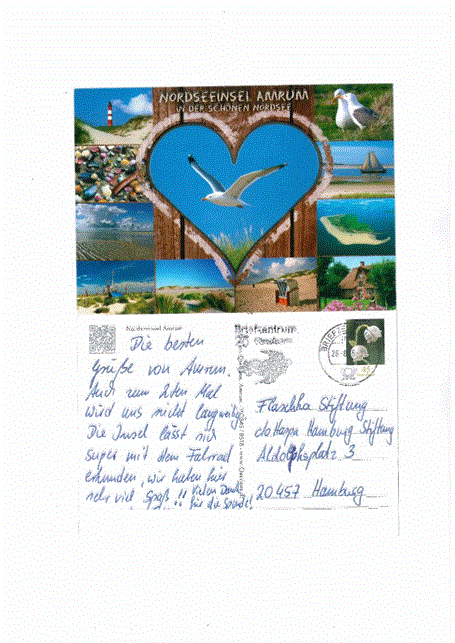 NORDSEEINSEL AMRUM
IN DER SCHÖNEN NORDSEE
Nordseeinsel Amrum
Briefzentrum
Die besten
Grüße von Amrum.
Auch zum 2ten Mal
wird uns nicht langweilig.
Die Insel lässt sich
super mit dem Fahrrad
erkunden, wir haben hier
sehr viel Spaß!! Vielen Dank
für die Spende!
45
Flaschka Stiftung
c/o Haspa Hamburg Stiftung
Adolphsplatz 3
20457 Hamburg